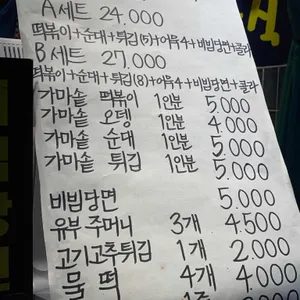 A세트 24.000
떡볶이+순대+튀김(5)+어묵4+비빔당면+콜라
B세트 27.000
떡볶이+순대+튀김(8)+어묵4+비빔당면+콜라
가마솥 떡볶이 1인분 5.000
가마솥 오뎅 1인분 4.000
가마솥 순대 1인분 5.000
가마솥 튀김 1인분 5.000
비빔당면 5.000
유부 주머니 3개 4.500
고기고추튀김 1개 2.000
물떡 4개 4.000